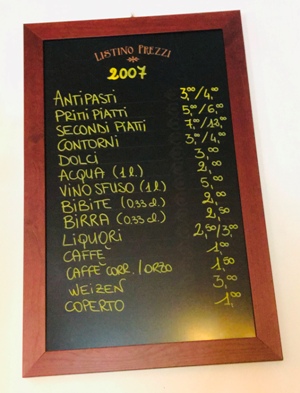 LISTINO PREZZI
2007
ANTIPASTI 3,00/4,00
PRIMI PIATTI 5,00/6,00
SECONDI PIATTI 7,00/12,00
CONTORNI 3,00/4,00
DOLCI 3,00
ACQUA (1 l.) 2,00
VINO SFUSO (1 l.) 5,00
BIBITE (0.33 cl.) 2,00
BIRRA (0.33 cl.) 2,50
LIQUORI 2,50/3,00
CAFFÈ 1,00
CAFFÈ CORR./ORZO 1,50
WEIZEN 3,00
COPERTO 1,00